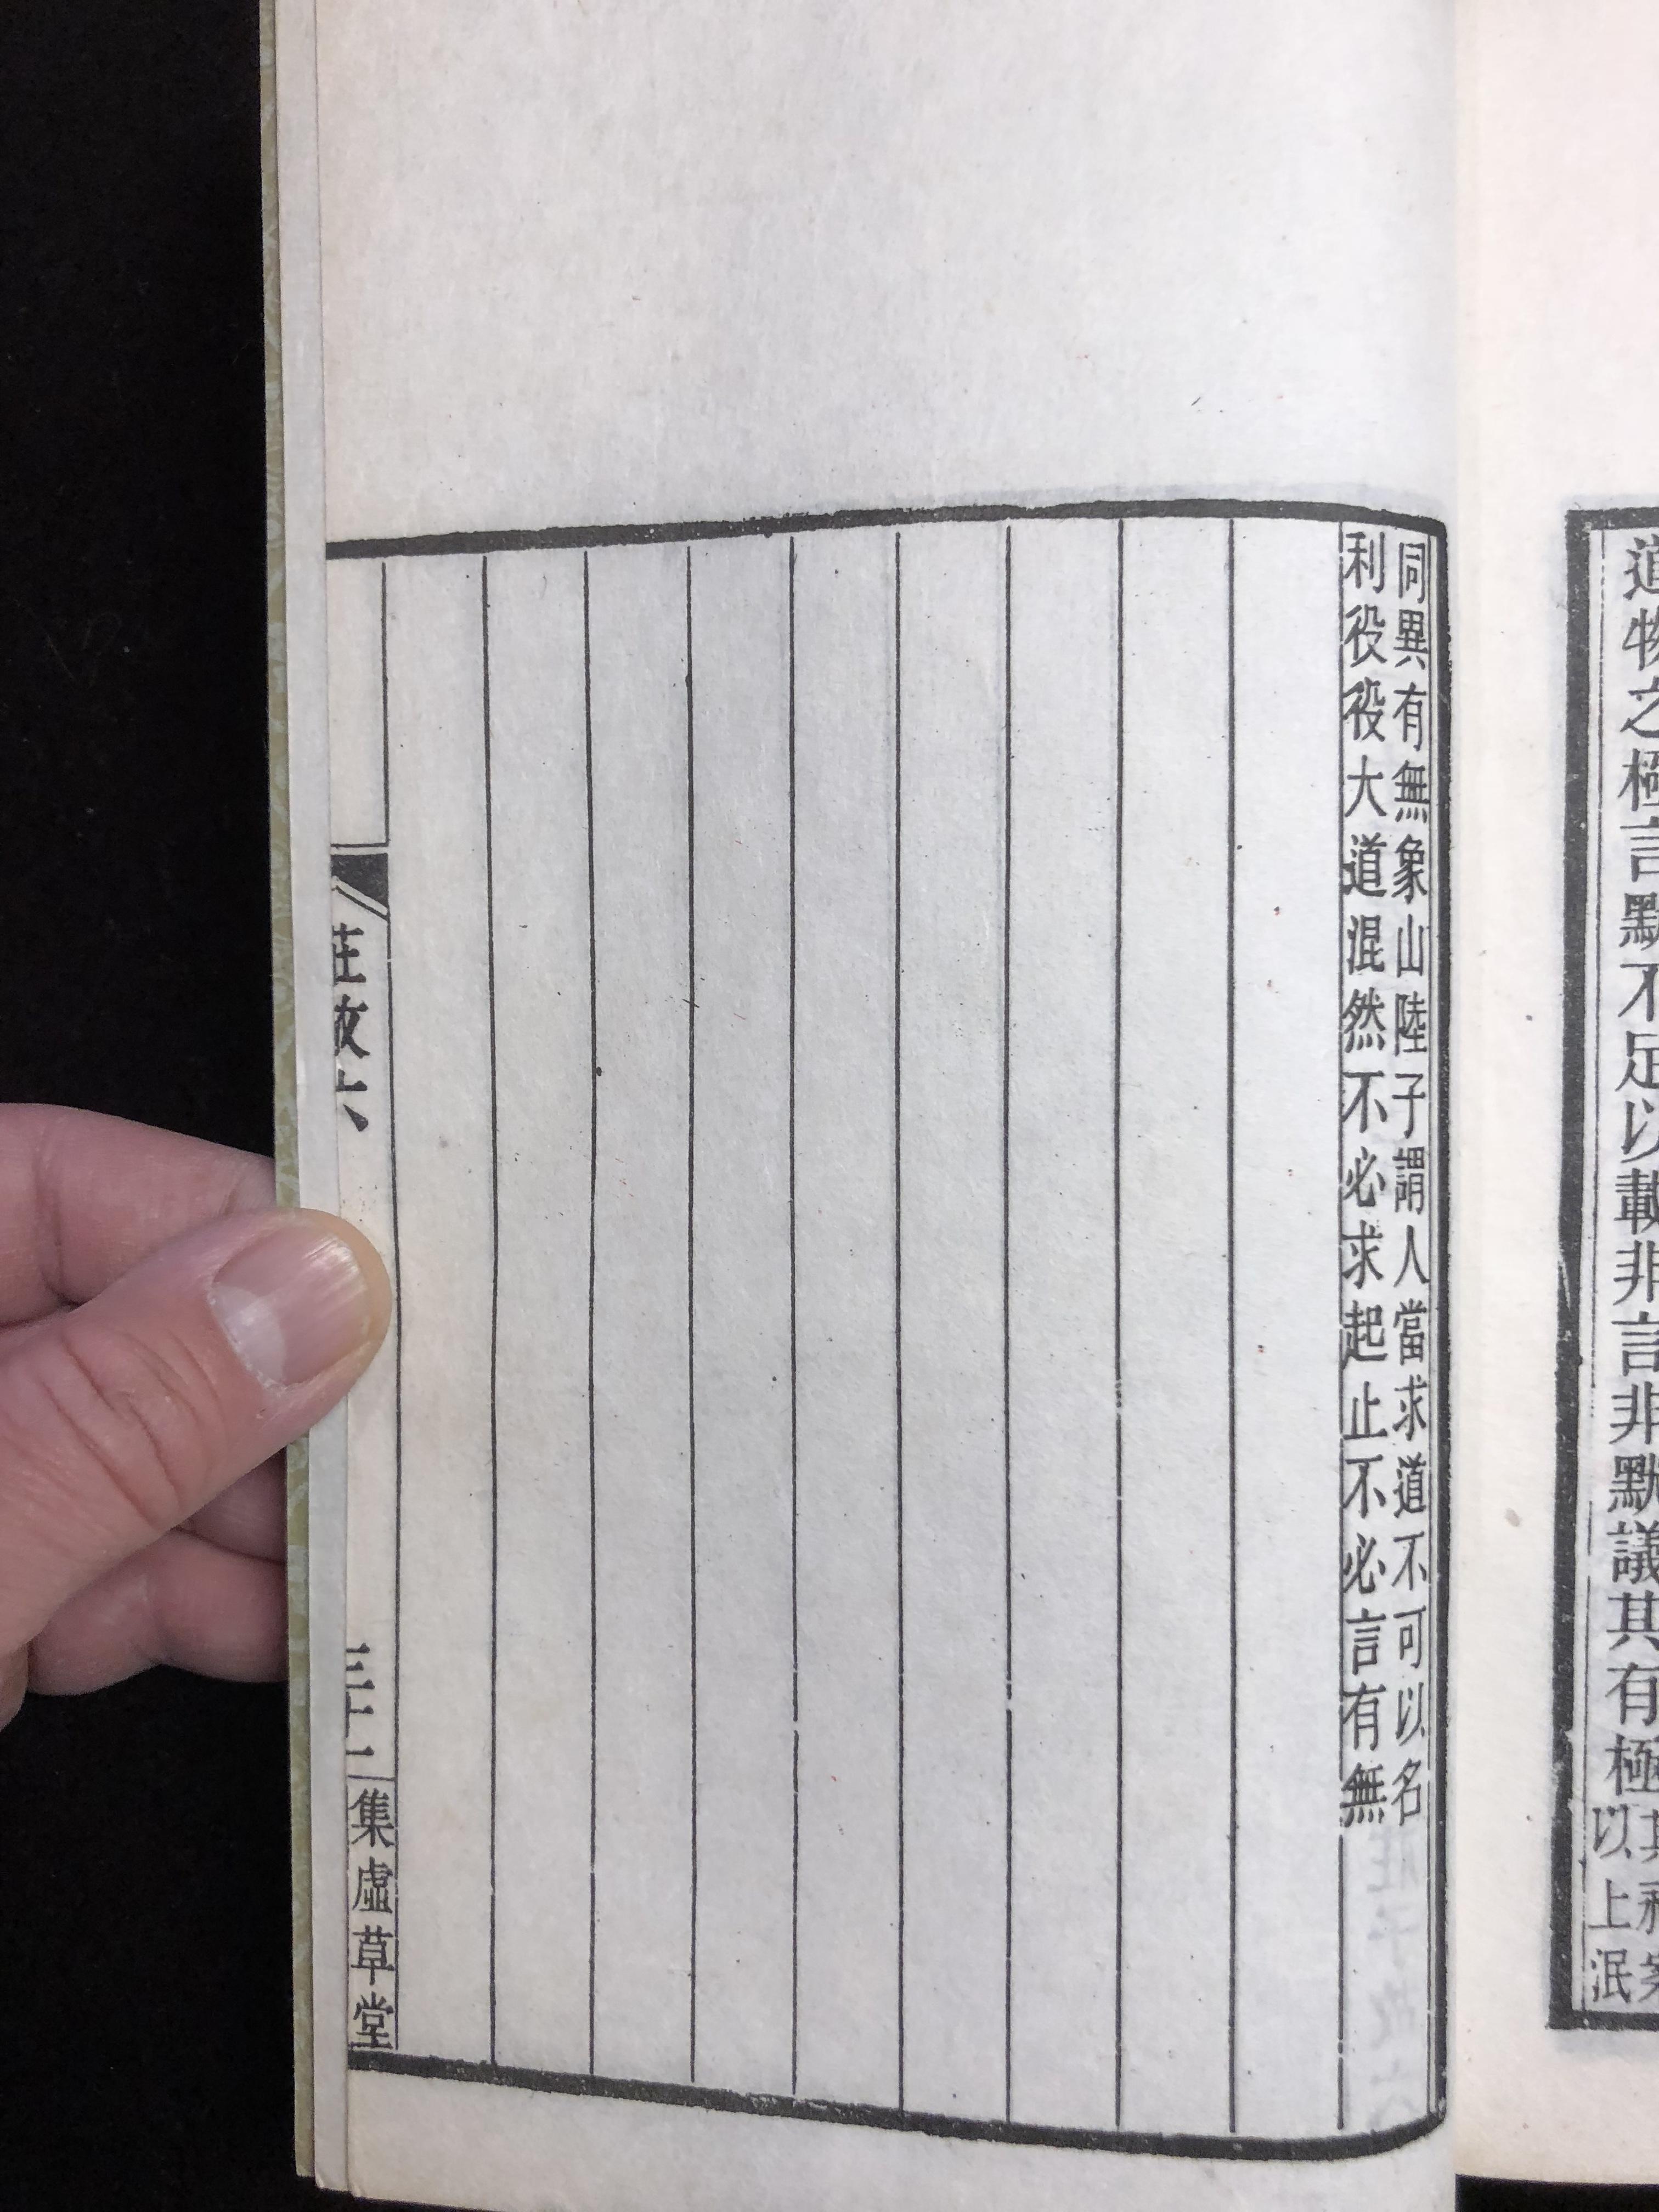 道物之極言默不足以載非言非默議其有極
以上泯
同異有無象山陸子謂人當求道不可以名
利役役大道混然不必求起止不必言有無
莊故六
三十一
集虛草堂